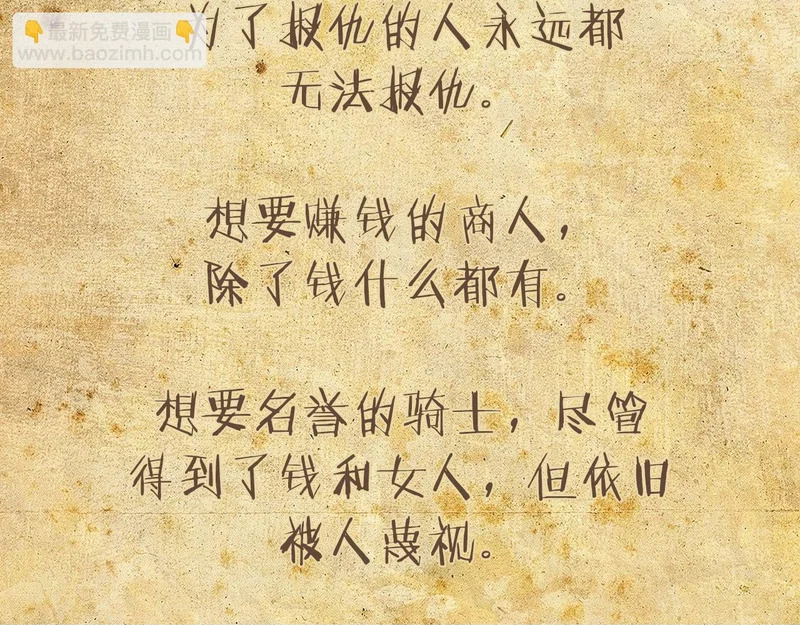 👇最新免费漫画👇
www.baozimh.com
为了报仇的人永远都
无法报仇。
想要赚钱的商人，
除了钱什么都有。
想要名誉的骑士，尽管
得到了钱和女人，但依旧
被人蔑视。